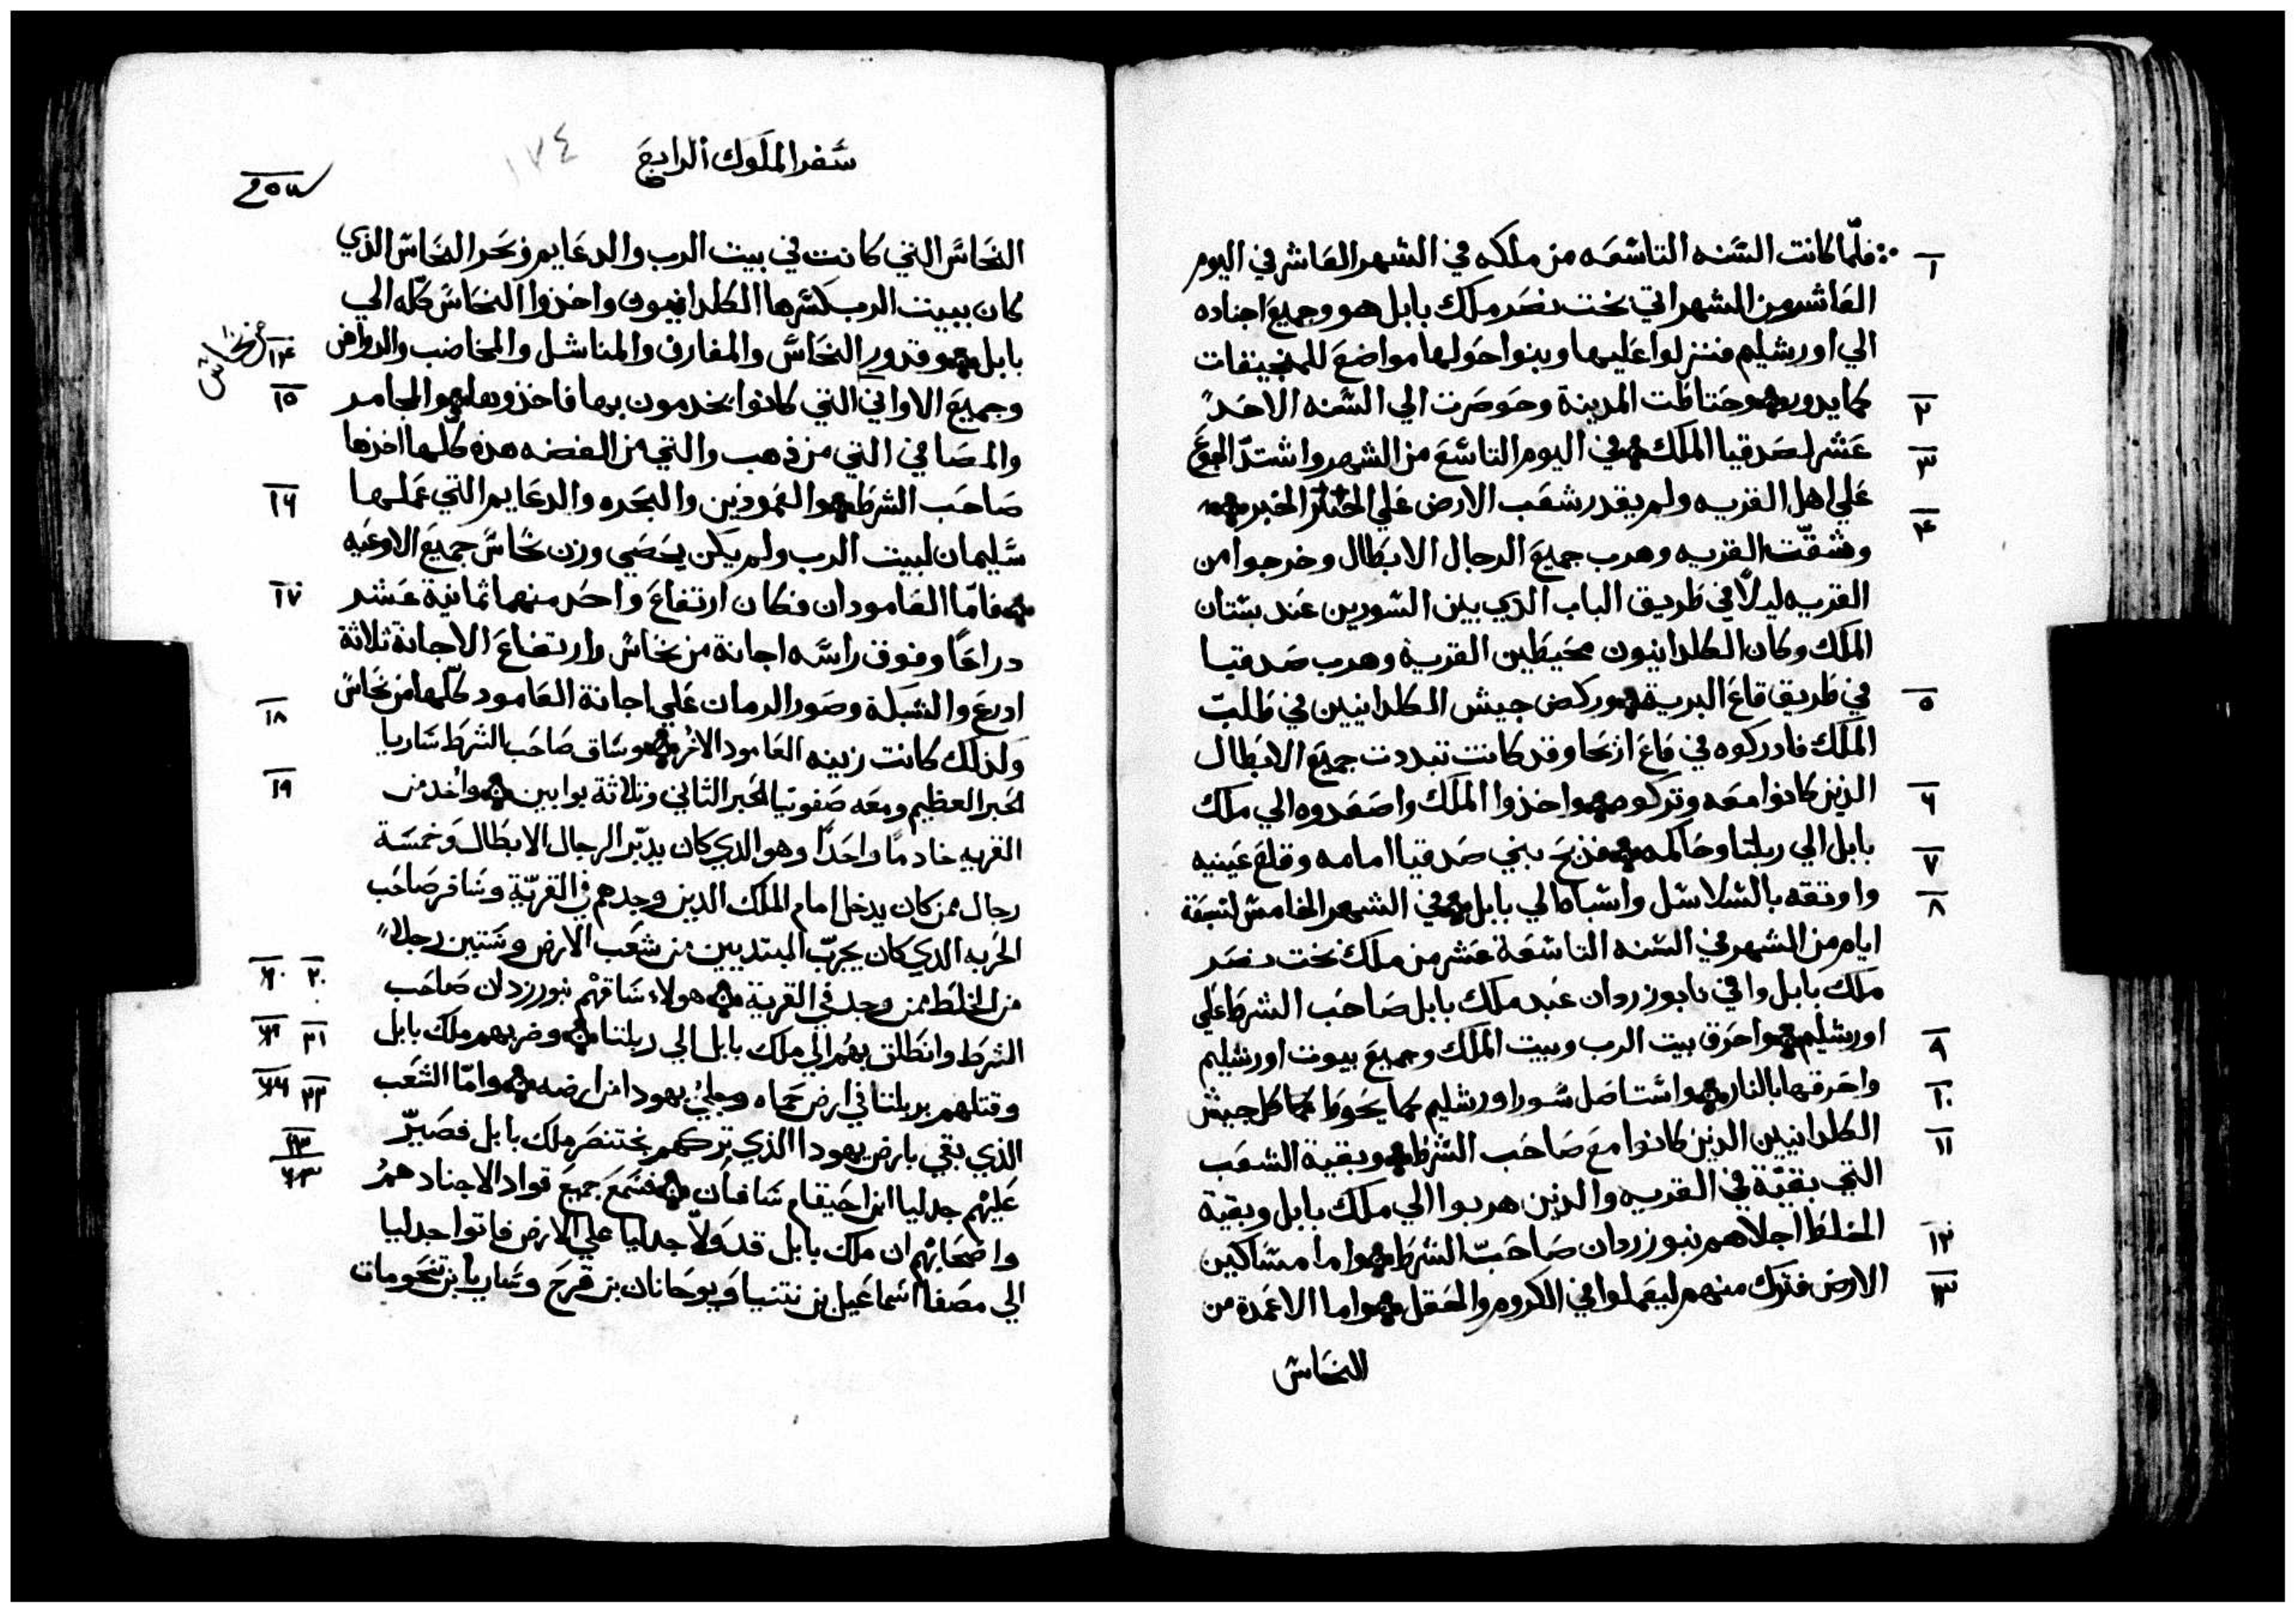 فلمّا كانت السنه التاسعه من ملكه في الشهر العاشر في اليوم
١
العاشر من الشهر اتي بخت نصر ملك بابل هو وجميع اجناده
الي اورشليم فنزلوا عليها وبنوا حولها مواضع للمنجنيقات
كما يدور وحتاطت المدينة وحوصرت الي السنه الاحد
٢
عشر لصدقيا الملك في اليوم التاسع من الشهر واشتدّ الجوع
٣
علي اهل القريه ولم يقدر شعب الارض علي الخبز
٤
وشقّت القريه وهرب جميع الرجال الابطال وخرجوا من
القريه ليلاً في طريق الباب الذي بين السورين عند بستان
الملك وكان الكلدانيون محيطين القرية وهرب صدقيا
في طريق قاع البرية وركض جيش الكلدانيين في طلب
٥
الملك فادركوه في قاع اريحا وقد كانت تبددت جميع الابطال
الذين كانوا معه وتركوه واخذوا الملك واصعدوه الي ملك
٦
بابل الي ربلتا وحاكمه فذبح بني صدقيا امامه وقلع عينيه
٧
واوتقه بالسلاسل واسباه الي بابل في الشهر الخامس لتسعة
٨
ايام من الشهر في السنه التاسعة عشر من ملك بخت نصر
ملك بابل وافي نابوزردان عبد ملك بابل صاحب الشرط علي
اورشليم واحرق بيت الرب وبيت الملك وجميع بيوت اورشليم
٩
واحرقها بالنار واستاصل سور اورشليم كما يحوط كل جيش
١٠
الكلدانيين الذين كانوا مع صاحب الشرط وبقية الشعب
١١
التي بقيّة في القريه والذين هربوا الي ملك بابل وبقية
الخلط اجلاهم نبوزردان صاحب الشرط واما مساكين
١٢
الارض فترك منهم ليعملوا في الكروم والحقل واما الاعمدة من
١٣
النحاس
سفر الملوك الرابع
١٧٤
النحاس التي كانت في بيت الرب والدعايم وبحر النحاس الذي
كان ببيت الرب كسرها الكلدانيون واخذوا النحاس كله الي
بابل وقدور النحاس والمغارف والمناشل والمخاضب
١٤
وجميع الاواني التي كانوا يخدمون بها فاخذوها والمجامر
١٥
والمصافي التي من ذهب والتي من الفضه هذه كلها اخذها
صاحب الشرط والعمودين والبحره والدعايم التي عملها
١٦
سليمان لبيت الرب ولم يكن يحصي وزن نحاس جميع الاوعيه
فامّا العامودان فكان ارتفاع واحد منهما ثمانية عشر
١٧
دراعًا وفوق راسه اجانة من نحاس وارتفاع الاجانة ثلاثة
ادرع والشبكة وصور الرمان علي اجانة العامود كلّها من نحاس
ولذلك كانت زينه العامود الاخر وساق صاحب الشرط ساريا
١٨
الحبر العظيم ومعه صفونيا الحبر الثاني وثلاثة بوابين واخد من
١٩
القريه خادمًا واحدًا وهو الدي كان يدبّر الرجال الابطال وخمسة
رجال ممن كان يدخل امام الملك الدين وجدهم في القريّة وسافر صاحب
الحربه الدي كان يجرّب المبتديين من شعب الارض وستين رجلاً
من الخلط ممن وجد في القرية هولاء ساقهم نبوزردان صاحب
٢٠
الشرط وانطلق بهم الي ملك بابل الي ربلتا وضربهم ملك بابل
٢١
وقتلهم بربلتا في ارض حماه وجلي يهودا من ارضه وامّا الشعب
٢٢
الذي بقي بارض يهودا الذي تركهم بختنصر ملك بابل فصيّر
عليهم جدليا ابن احيقام شافان فسمع جميع قواد الاجناد هم
٢٣
واصحابهم ان ملك بابل قد ولاّ جدليا علي الارض فاتوا جدليا
الي مصفا اسماعيل بن نتنيا ويوحانان بن قرح وساريا بن تنحومات